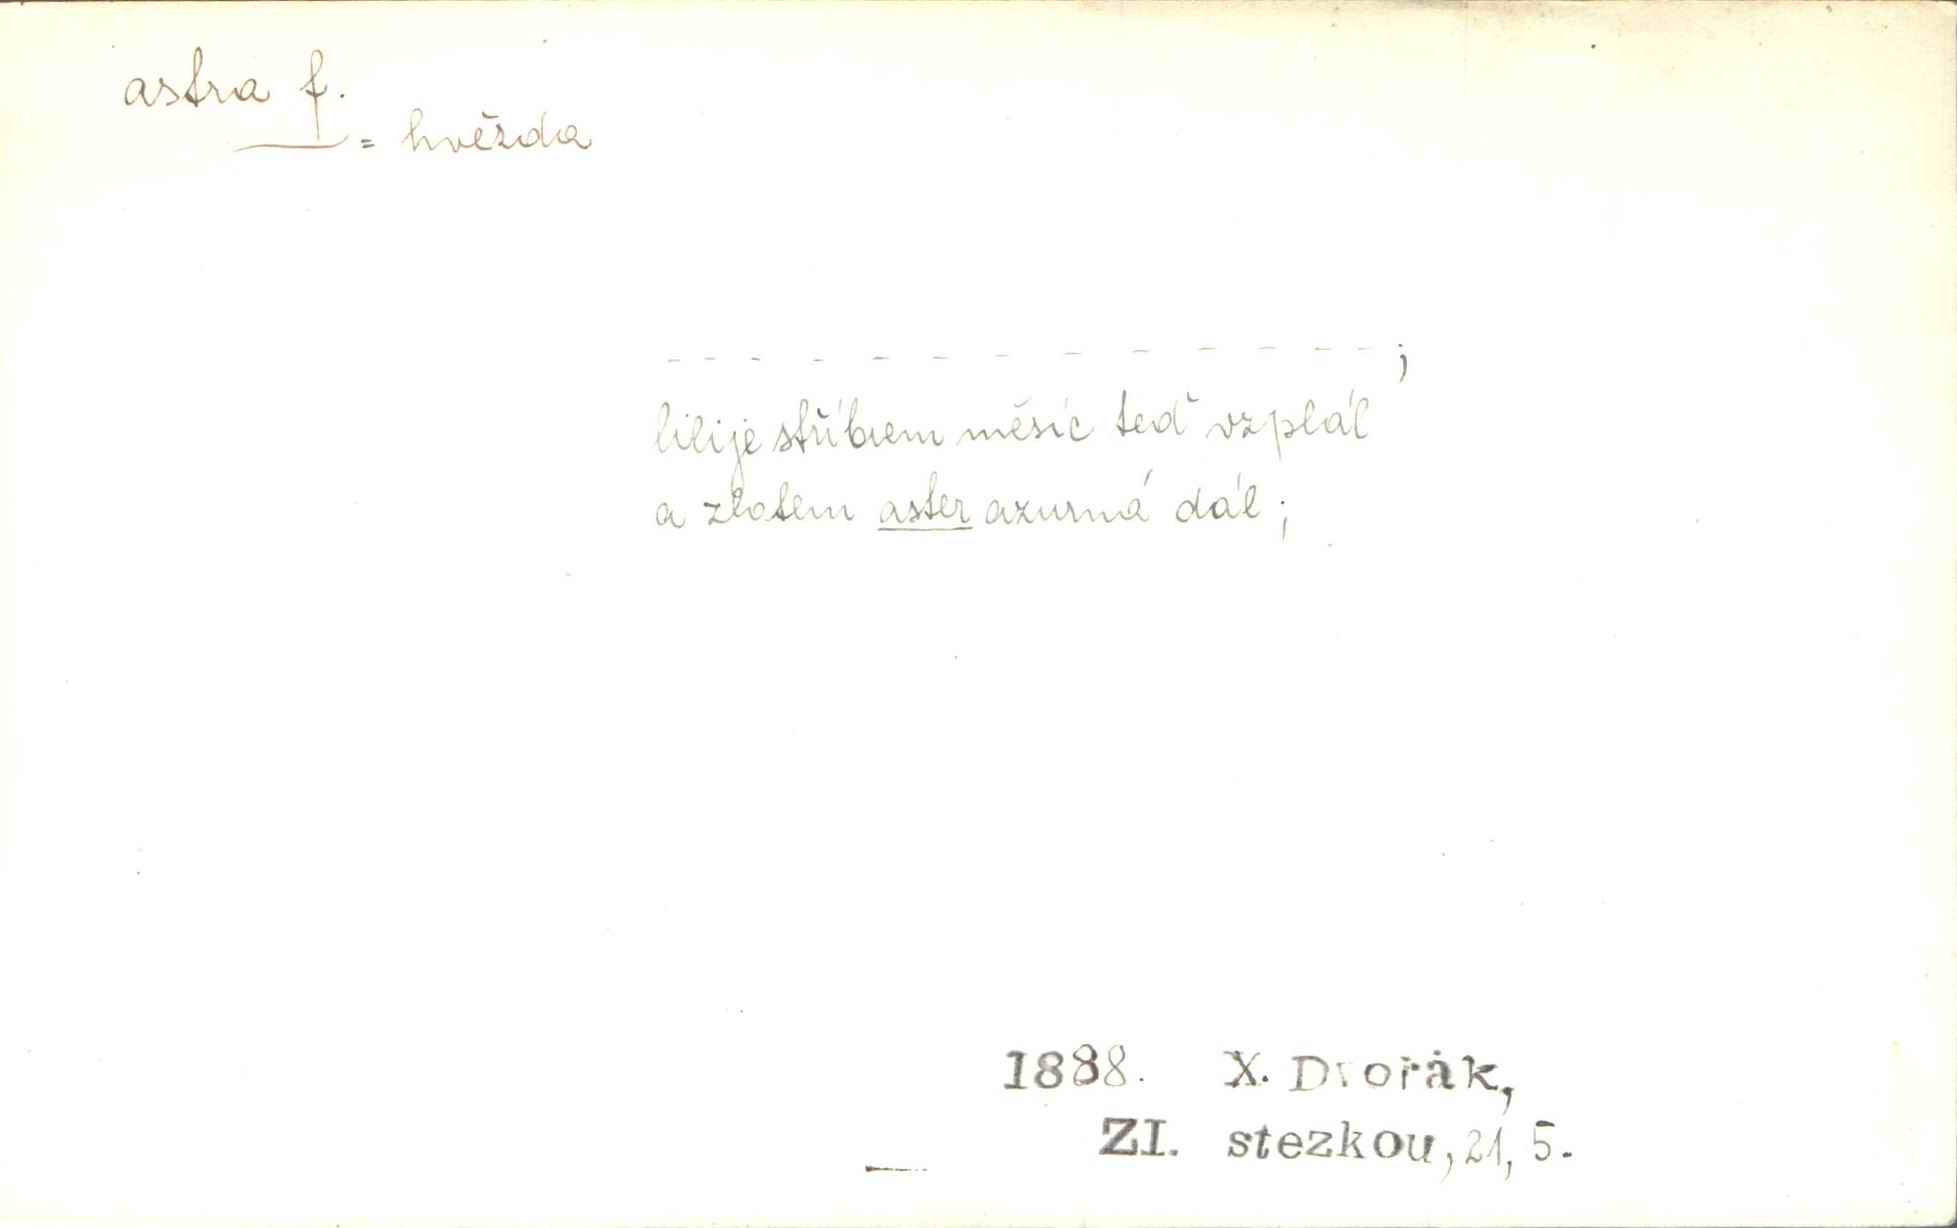 astra f.
= hvězda
- - - - - - - - - - - - - - - ;
lilije stříbrem měsíc teď vzplál
a zlatem aster azurná dál;
1888. X. Dvořák,
ZI. stezkou, 21, 5.